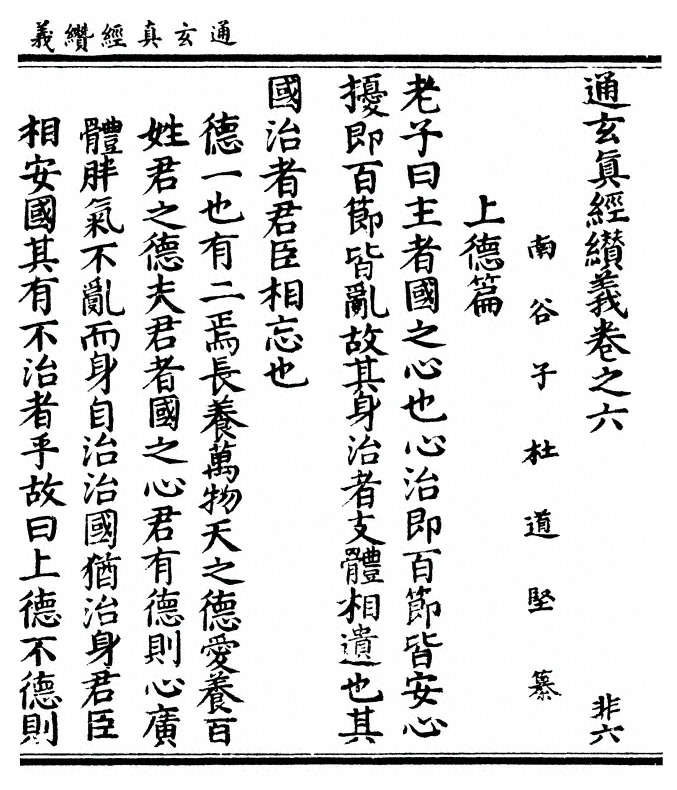 通玄真經纘義
通玄真經纘義卷之六
非六
南谷子杜道堅纂
上德篇
老子曰主者國之心也心治即百節皆安心
擾即百節皆亂故其身治者支體相遺也其
國治者君臣相忘也
德一也有二焉長養萬物天之德愛養百
姓君之德夫君者國之心君有德則心廣
體胖氣不亂而身自治治國猶治身君臣
相安國其有不治者乎故曰上德不德則